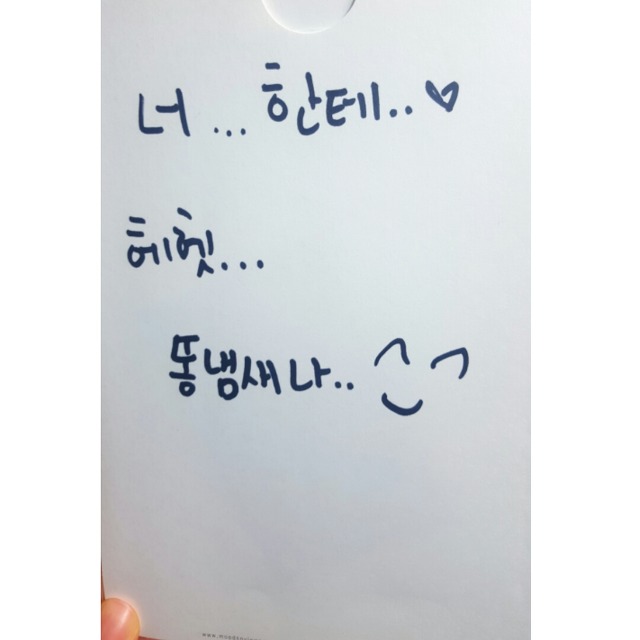 너 ... 한테.. ♥
헤헷...
똥냄새나.. ^_^